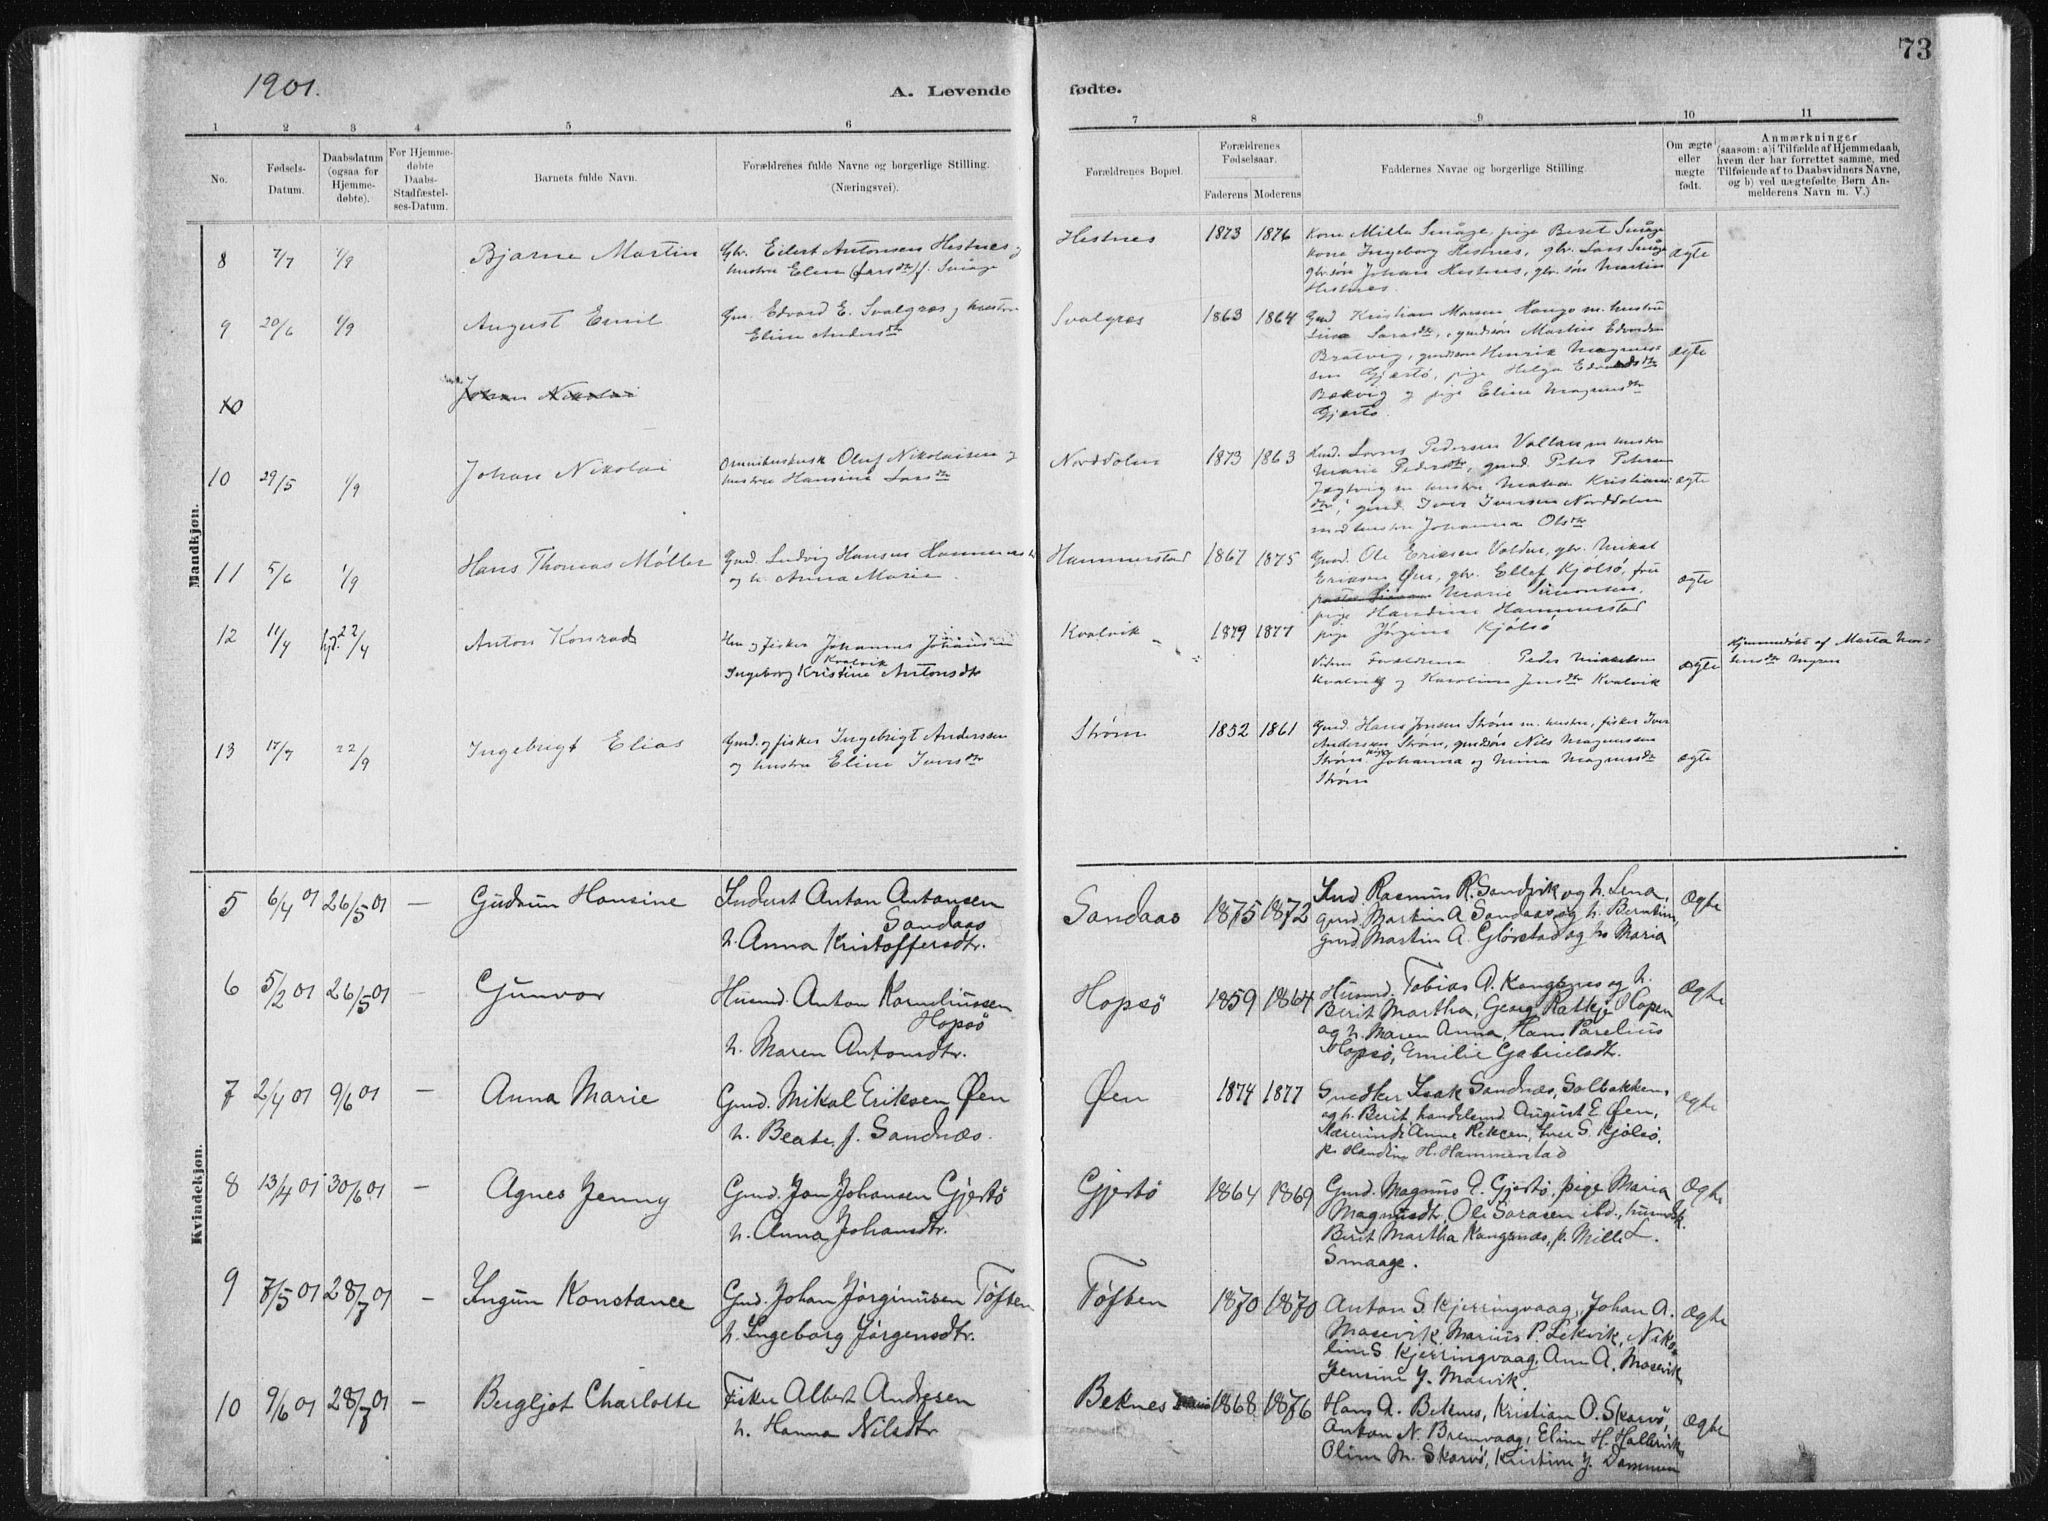 1901.
A. Levende fødte.
73
1 2 3 4 5 6 7 8 9 10 11
No.
Fødsels-
Datum.
Daabsdatum
(ogsaa for
Hjemme-
døbte).
For Hjemme-
døbte
Daabs-
Stadfæstel-
ses-Datum.
Barnets fulde Navn.
Forældrenes fulde Navne og borgerlige Stilling.
(Næringsvei).
Forældrenes Bopæl.
Forældrenes
Fødselsaar.
Faderens Moderens
Faddernes Navne og borgerlige Stilling.
Om ægte
eller
uægte
født.
Anmærkninger
(saasom: a) i Tilfælde af Hjemmedaab,
hvem der har forrettet samme, med
Tilføiende af to Daabsvidners Navne,
og b) ved uægtefødte Børn An-
melderens Navn m. V.)
Mandkjøn.
8 7/7 1/9 Bjarne Martin
Gbr. Eilert Antonsen Hestnes og
hustru Eline (Larsdtr) f. Småge
Hestnes 1873 1876
Kone Mille Småge, pige Beret Småge
kone Ingeborg Hestnes, gbr. Lars Småge
gbr. søn Johan Hestnes, gbr. søn Martin
Hestnes.
ægte
9 20/6 1/9 August Emil
Gm. Edvard E. Svalgræs og hustru
Eline Andersdtr
Svalgræs 1863 1864
Gmd Kristian Hansen Haugo m. hustru
Larsdtr, gmdsøn Martin Edvardsen
Bratvig, gmdsøn Henrik Magnus-
sen Gjærtø, pige Helga Edvardsdtr
Bækvig og pige Eline Magnusdtr
Gjærtø.
ægte
10 Johan Nikolai
10 29/5 1/9 Johan Nikolai
Oluf Nikolaisen og
hustru Hansine Larsdtr
Norddalen 1873 1863
Pedersen Vollan m hustru
Marie Pedersdtr, gmd. Peter Petersen
Jægtvig m hustru Kristians-
dtr, gmd. Iver Iversen Norddalen
med hustru Johanna Olsdtr
ægte
11 5/6 1/9 Hans Thomas Møller
Gmd. Ludvig Hansen Hammerstad
og h. Anna Marie.
Hammerstad 1867 1875
Gmd. Ole Eriksen Valdn, gbr. Mikal
Eriksen Øen, gbr. Ellef Kjølsø, fru
Marie Simonsen,
pige Handine Hammerstad
pige Jørgine Kjølsø
ægte
12 11/4 hjd. 22/4 Anton Konrad
og fisker Johannes Johansen
Kvalvik
Ingeborg Kristine Antonsdtr
Kvalvik 1879 1877
Vidner Forældrene. Peder Mikkelsen
Kvalvik og Karoline Jensdtr Kvalvik
ægte
Hjemmedøbt af Marta
Myren
13 17/7 22/9 Ingebrigt Elias
Gmd. og fisker Ingebrigt Anderssen
og hustru Eline Iversdtr
Strøm 1852 1861
Gmd. Hans Jonsen Strøm m. hustru, fisker Iver
Anderssen Strøm, gmdsøn Nils Magnussen
Strøm, piger Johanna og Mina Magnusdtr
Strøm
ægte
Kvindekjøn.
5 6/4 01 26/5 01 — Gudrun Hansine
Inderst Anton Antonsen
Sandaas
h. Anna Kristoffersdtr.
Sandaas 1875 1872
Ind. Rasmus R. Sandvik og h. Lena,
gmd. Martin A. Sandaas og h. Berntine,
gmd. Martin A. Gløstad og h. Maria
Ægte
6 5/2 01 26/5 01 — Gunvor
Husmd. Anton Korneliussen
Hopsø
h. Maren Antonsdtr.
Hopsø 1859 1864
Husmd. Tobias A. Kongsnes og h.
Berit Martha, Georg Ratkje Hopen
og h. Maren Anna, Hans Parelius
Hopsø, Emilie Gabrielsdtr.
Ægte
7 2/4 01 9/6 01 — Anna Marie
Gmd. Mikal Eriksen Øen
h. Beate, f. Sandnæs.
Øen 1874 1877
Snedker Isak Sandnæs, Solbakken,
og h. Berit, handelsmd. August E. Øen,
Anne Reksen, Iver S. Kjølsø,
p. Handine H. Hammerstad
Ægte
8 13/4 01 30/6 01 — Agnes Jenny
Gmd. Jon Johansen Gjertø
h. Anna Johansdtr.
Gjertø 1864 1869
Gmd. Magnus A. Gjertø, pige Maria
Magnusdtr, Ole Larssen ibd., husmdsk.
Berit Martha Kongsnæs, p. Mille L.
Smaage.
Ægte
9 7/5 01 28/7 01 — Ingun Konstance
Gmd. Johan Jørginusen Tøften
h. Ingeborg Jørgensdtr.
Tøften 1870 1870
Anton S. Kjerringvaag, Johan A.
Masevik, Marius P. Lekvik, Niko-
line S. Kjerringvaag, Ane A. Masevik,
Jensine J. Masvik.
Ægte
10 9/6 01 28/7 01 — Bergljot Charlotte
Fisker Albert Andresen
h. Hanna Nilsdtr
Beknes 1868 1876
Hans A. Beknes, Kristian O. Skarsø,
Anton N. Bremvaag, Eline H. Hallarvik,
Oline M. Skarsø, Kristine J. Dommen
Ægte